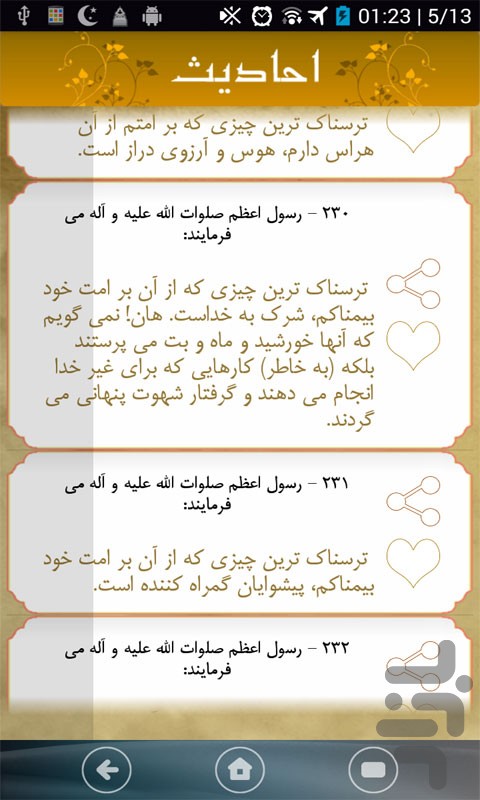 01:23 | 5/13
احادیث
ترسناک ترین چیزی که بر امتم از آن
هراس دارم، هوس و آرزوی دراز است.
۲۳۰ - رسول اعظم صلوات الله علیه و آله می
فرمایند:
ترسناک ترین چیزی که از آن بر امت خود
بیمناکم، شرک به خداست. هان! نمی گویم
که آنها خورشید و ماه و بت می پرستند
بلکه (به خاطر) کارهایی که برای غیر خدا
انجام می دهند و گرفتار شهوت پنهانی می
گردند.
۲۳۱ - رسول اعظم صلوات الله علیه و آله می
فرمایند:
ترسناک ترین چیزی که از آن بر امت خود
بیمناکم، پیشوایان گمراه کننده است.
۲۳۲ - رسول اعظم صلوات الله علیه و آله می
فرمایند:
بازار